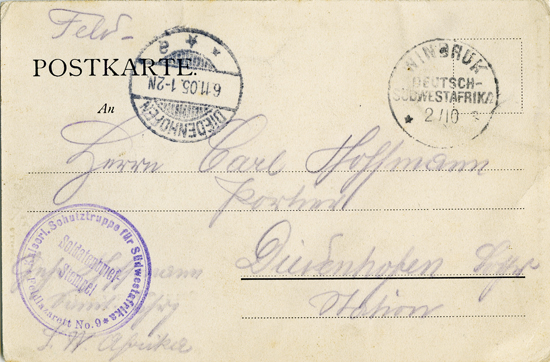 Feld-
POSTKARTE.
An
DIEDENHOFEN
6.11.05.1-2N
* * a
WINDHUK
DEUTSCH-
SÜDWESTAFRIKA
2/10
Herrn Carl Hoffmann
Portier
Diedenhofen
Station
Kaiserl. Schutztruppe für Südwestafrika
Soldatenbrief-
Stempel
Feldlazarett No. 9
Hoffmann
S. W. Afrika